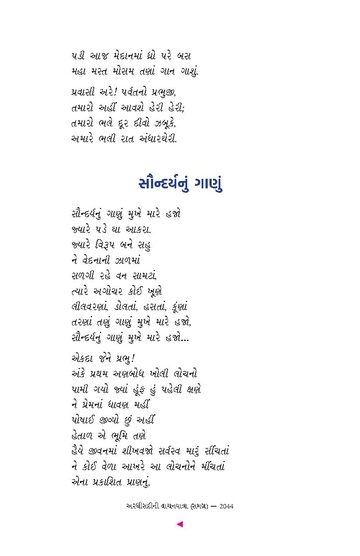 પડી આજ મેદાનમાં દ્યો પરે બસ
મહા મસ્ત મોસમ તણાં ગાન ગાશું.
પ્રવાસી અરે! પર્વતનો પ્રભુજી,
તમારો અહીં આવશે હેરી હેરી;
તમારો ભલે દૂર દીવો ઝબૂકે,
અમારે ભલી રાત અંધારઘેરી.
સૌન્દર્યનું ગાણું
સૌન્દર્યનું ગાણું મુખે મારે હજો
જ્યારે પડે ઘા આકરા.
જ્યારે વિરૂપ બને સહુ
ને વેદનાની ઝાળમાં
સળગી રહે વન સામટાં,
ત્યારે અગોચર કોઈ ખૂણે
લીલવરણાં, ડોલતાં, હસતાં, કૂંણાં
તરણાં તણું ગાણું મુખે મારે હજો,
સૌન્દર્યનું ગાણું મુખે મારે હજો...
એકદા જેને પ્રભુ!
અંકે પ્રથમ અણબોધ ખોલી લોચનો
પામી ગયો જ્યાં હૂંફ હું પહેલી ક્ષણે
ને પ્રેમનાં ધાવણ મહીં
પોષાઈ જીવ્યો છું અહીં
હેતાળ એ ભૂમિ તણે
હૈવે જીવનમાં શીખવજો સર્વસ્વ મારું સીંચતાં
ને કોઈ વેળા આખરે આ લોચનોને મીંચતાં
એના પ્રકાશિત પ્રાણનું,
અરધીસદીની વાચનયાત્રા (સમગ્ર) — 2044